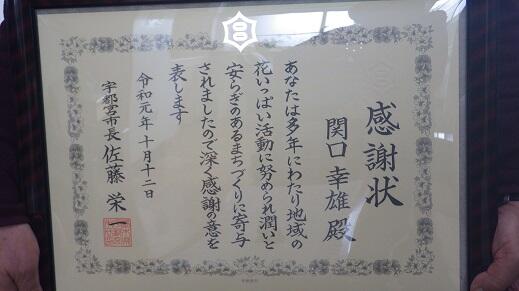 感謝状
関口幸雄殿
あなたは多年にわたり地域の
花いっぱい活動に努められ潤いと
安らぎのあるまちづくりに寄与
されましたので深く感謝の意を
表します
令和元年十月十二日
宇都宮市長 佐藤栄一